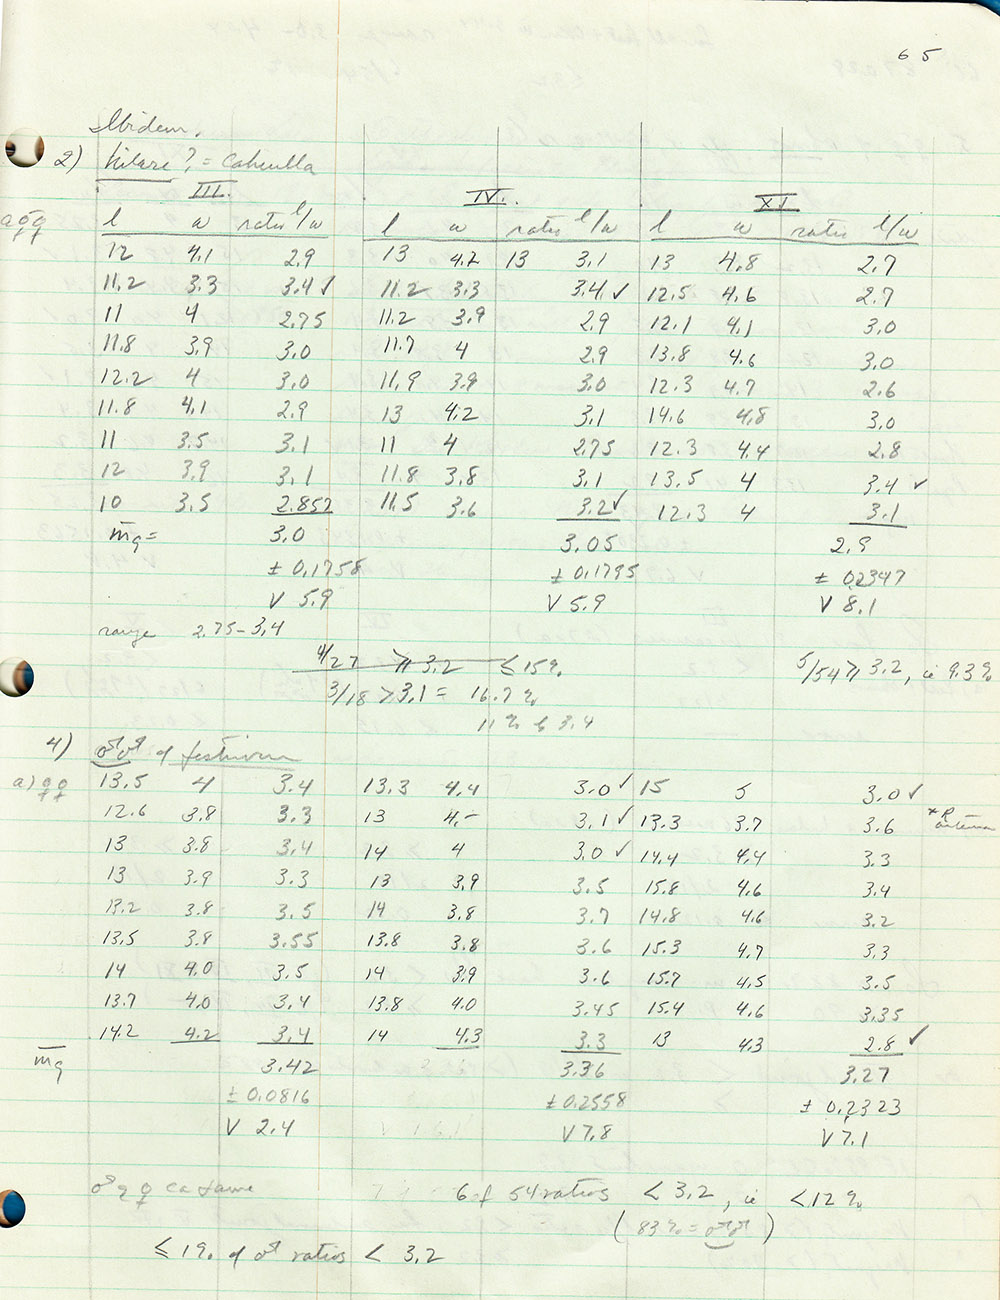 65
Ibidem.
2) hilare? = Cahuilla
III. IV. XI
a ♂♀♀ l w ratio l/w l w ratio l/w l w ratio l/w
12 4.1 2.9 13 4.2 13 3.1 13 4.8 2.7
11.2 3.3 3.4 ✓ 11.2 3.3 3.4 ✓ 12.5 4.6 2.7
11 4 2.75 11.2 3.9 2.9 12.1 4.1 3.0
11.8 3.9 3.0 11.7 4 2.9 13.8 4.6 3.0
12.2 4 3.0 11.9 3.9 3.0 12.3 4.7 2.6
11.8 4.1 2.9 13 4.2 3.1 14.6 4.8 3.0
11 3.5 3.1 11 4 2.75 12.3 4.4 2.8
12 3.9 3.1 11.8 3.8 3.1 13.5 4 3.4 ✓
10 3.5 2.857 11.5 3.6 3.2 ✓ 12.3 4 3.1
mg = 3.0 3.05 2.9
± 0.1758 ± 0.1795 ± 0.2347
V 5.9 V 5.9 V 8.1
range 2.75-3.4
4/27 ⩾ 3.2 ≤ 15% 5/54 ⩾ 3.2, ie 9.3%
3/18 > 3.1 = 16.7%
11% 3.4
4) ♂♂ of festivum
a) ♀♀ 13.5 4 3.4 13.3 4.4 3.0 ✓ 15 5 3.0 ✓
12.6 3.8 3.3 13 4.- 3.1 ✓ 13.3 3.7 3.6 * R antenna
13 3.8 3.4 14 4 3.0 ✓ 14.4 4.4 3.3
13 3.9 3.3 13 3.9 3.5 15.8 4.6 3.4
13.2 3.8 3.5 14 3.8 3.7 14.8 4.6 3.2
13.5 3.8 3.55 13.8 3.8 3.6 15.3 4.7 3.3
14 4.0 3.5 14 3.9 3.6 15.7 4.5 3.5
13.7 4.0 3.4 13.8 4.0 3.45 15.4 4.6 3.35
14.2 4.2 3.4 14 4.3 3.3 13 4.3 2.8 ✓
mg 3.42 3.36 3.27
± 0.0816 ± 0.2558 ± 0.2323
V 2.4 V 7.8 V 7.1
♂ & ♀ ca same 6 of 54 ratios < 3.2, ie < 12%
(83% = ♂♂)
≤ 1% of ♂ ratios < 3.2